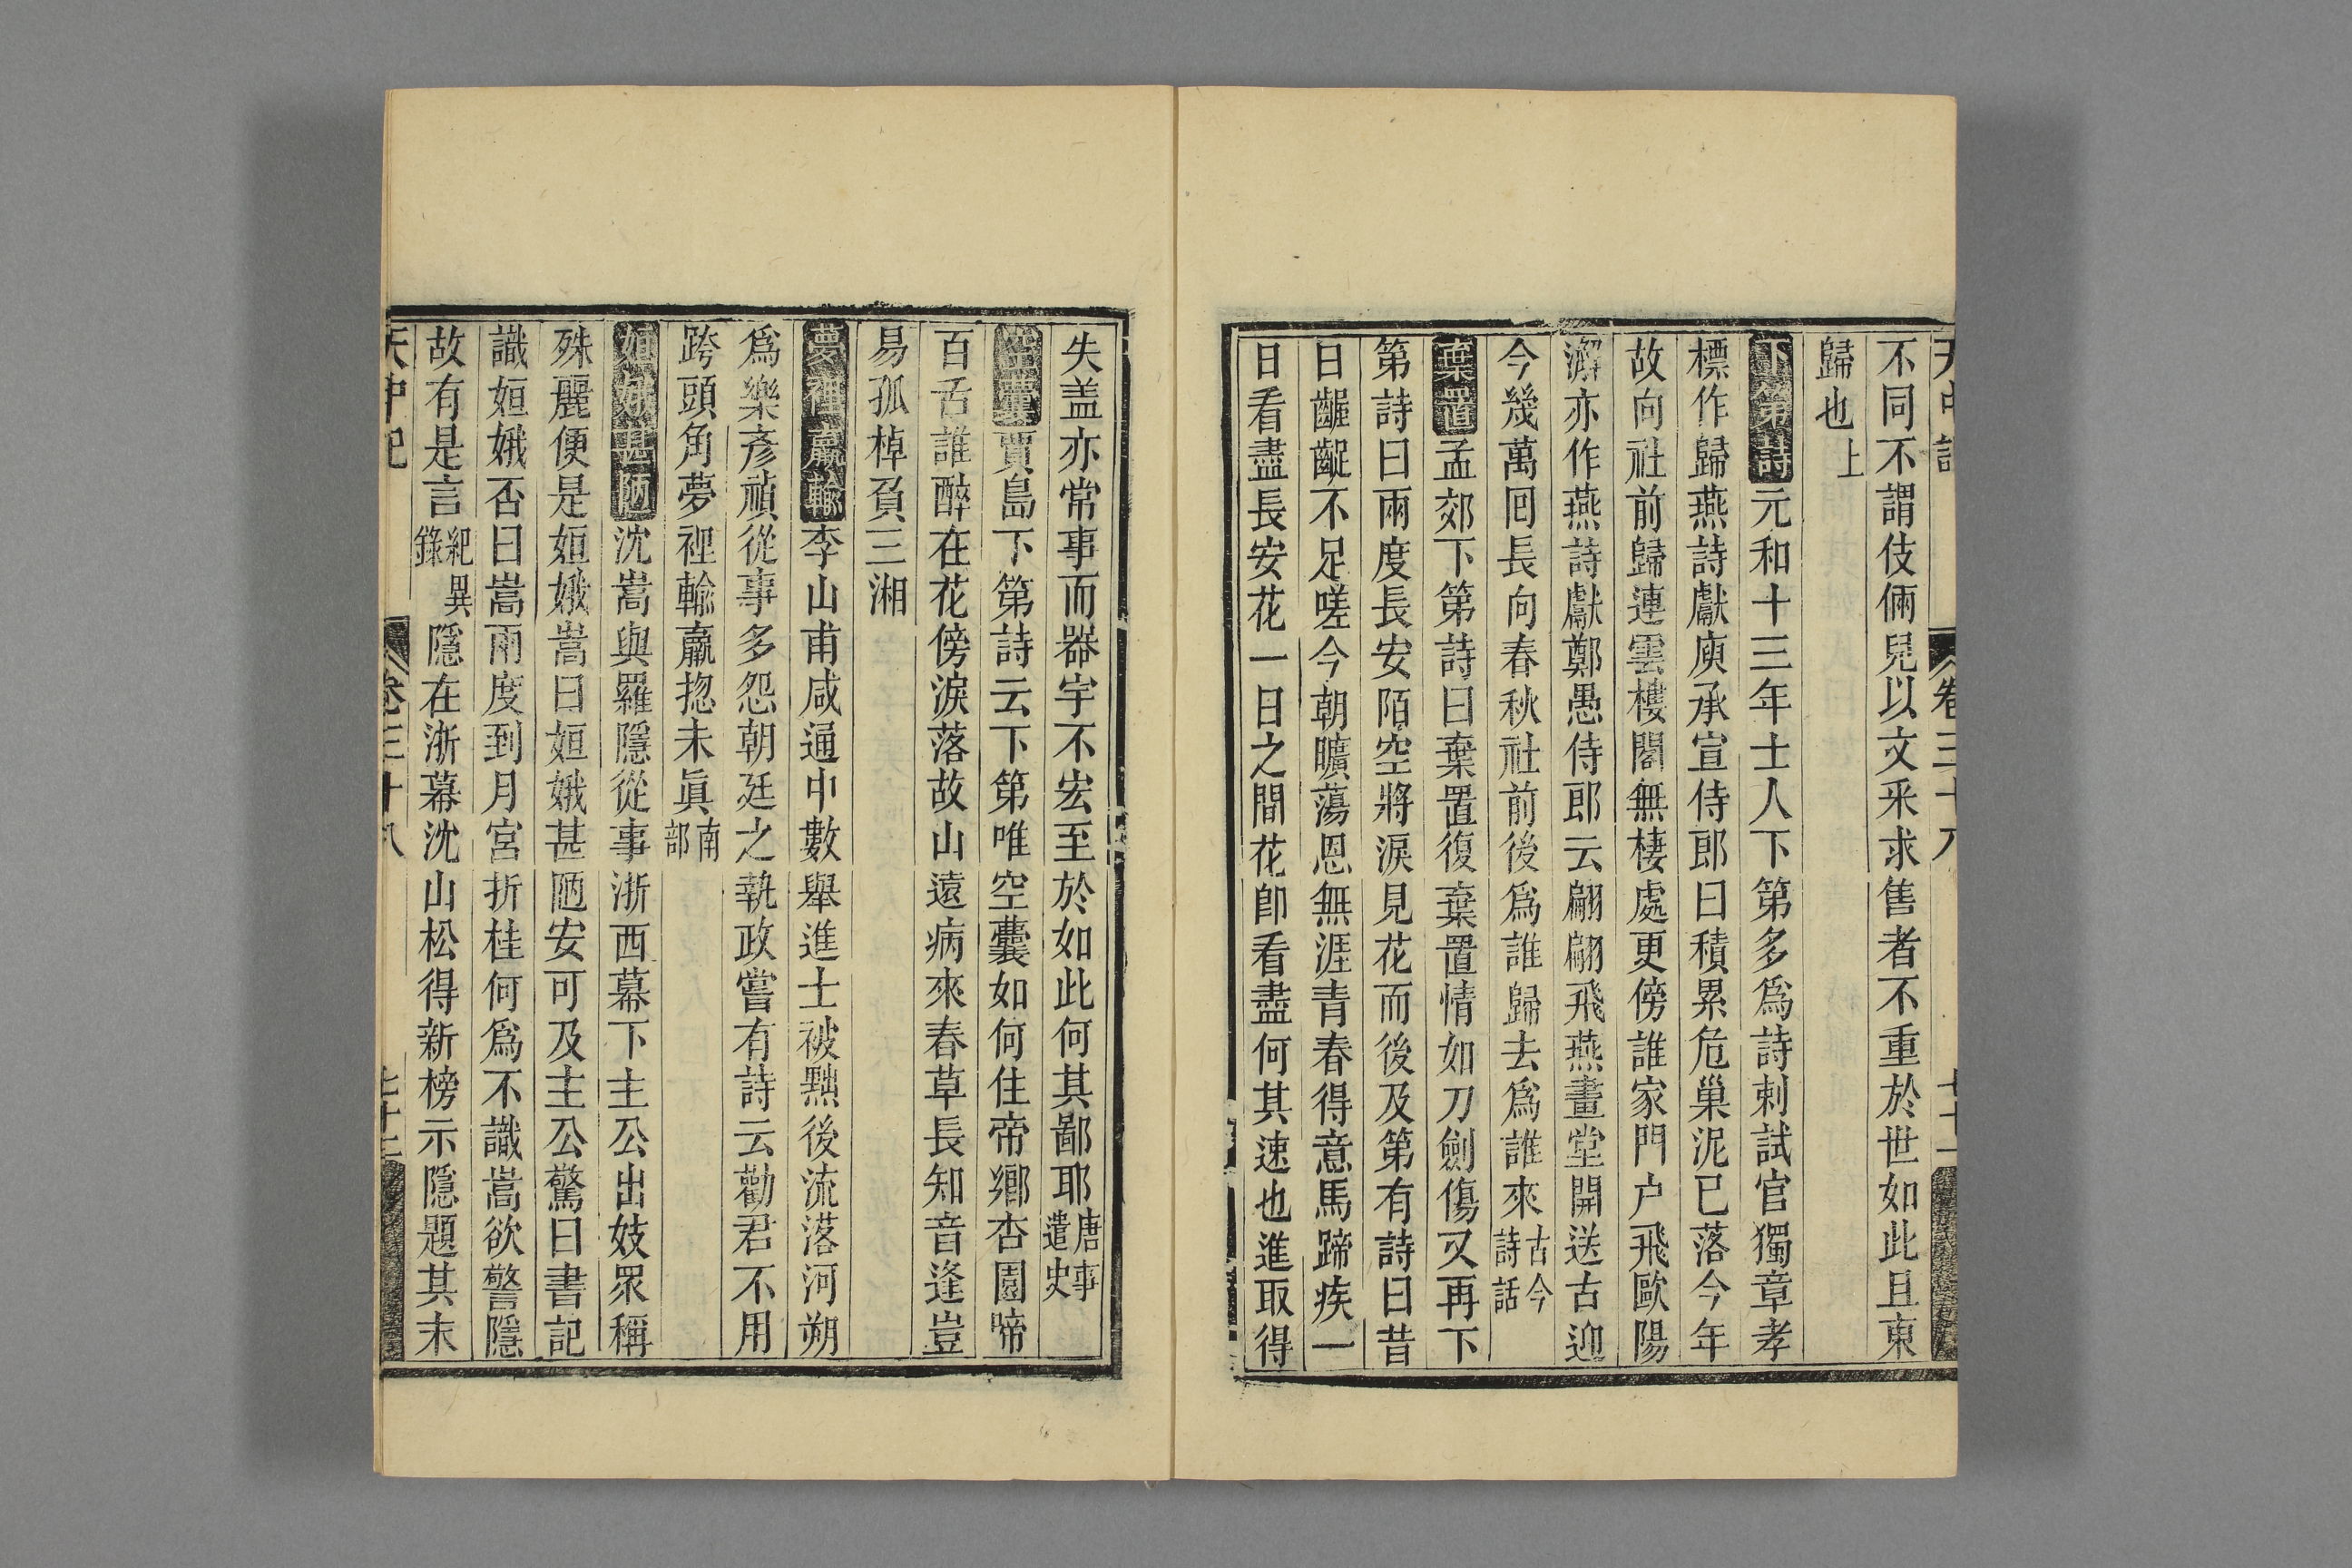 天中記 卷三十八 七十一
不同不謂伎倆兒以文采求售者不重於世如此且東
歸也上
下第詩元和十三年士人下第多爲詩刺試官獨章孝
標作歸燕詩獻庾承宣侍郎曰積累危巢泥已落今年
故向社前歸連雲樓閣無棲處更傍誰家門户飛歐陽
澥亦作燕詩獻鄭愚侍郎云翩翩飛燕畫堂開送古迎
今幾萬囘長向春秋社前後爲誰歸去爲誰來古今詩話
棄置孟郊下第詩曰棄置復棄置情如刀劍傷又再下
第詩曰兩度長安陌空將淚見花而後及第有詩曰昔
日齷齪不足嗟今朝曠蕩恩無涯青春得意馬蹄疾一
日看盡長安花一日之間花卽看盡何其速也進取得
失盖亦常事而器宇不宏至於如此何其鄙耶唐事遺史
空囊賈島下第詩云下第唯空囊如何住帝鄉杏園啼
百舌誰醉在花傍淚落故山遠病來春草長知音逢豈
易孤棹負三湘
夢裡贏輸李山甫咸通中數舉進士被黜後流落河朔
爲樂彥禎從事多怨朝廷之執政嘗有詩云勸君不用
跨頭角夢裡輸贏揔未眞南部
姮娥甚陋沈嵩與羅隱從事浙西幕下主公出妓眾稱
殊麗便是姮娥嵩曰姮娥甚陋安可及主公驚曰書記
識姮娥否曰嵩兩度到月宮折桂何爲不識嵩欲警隱
故有是言紀異錄隱在浙幕沈山松得新榜示隱題其末
天中記 卷三十八 七十二